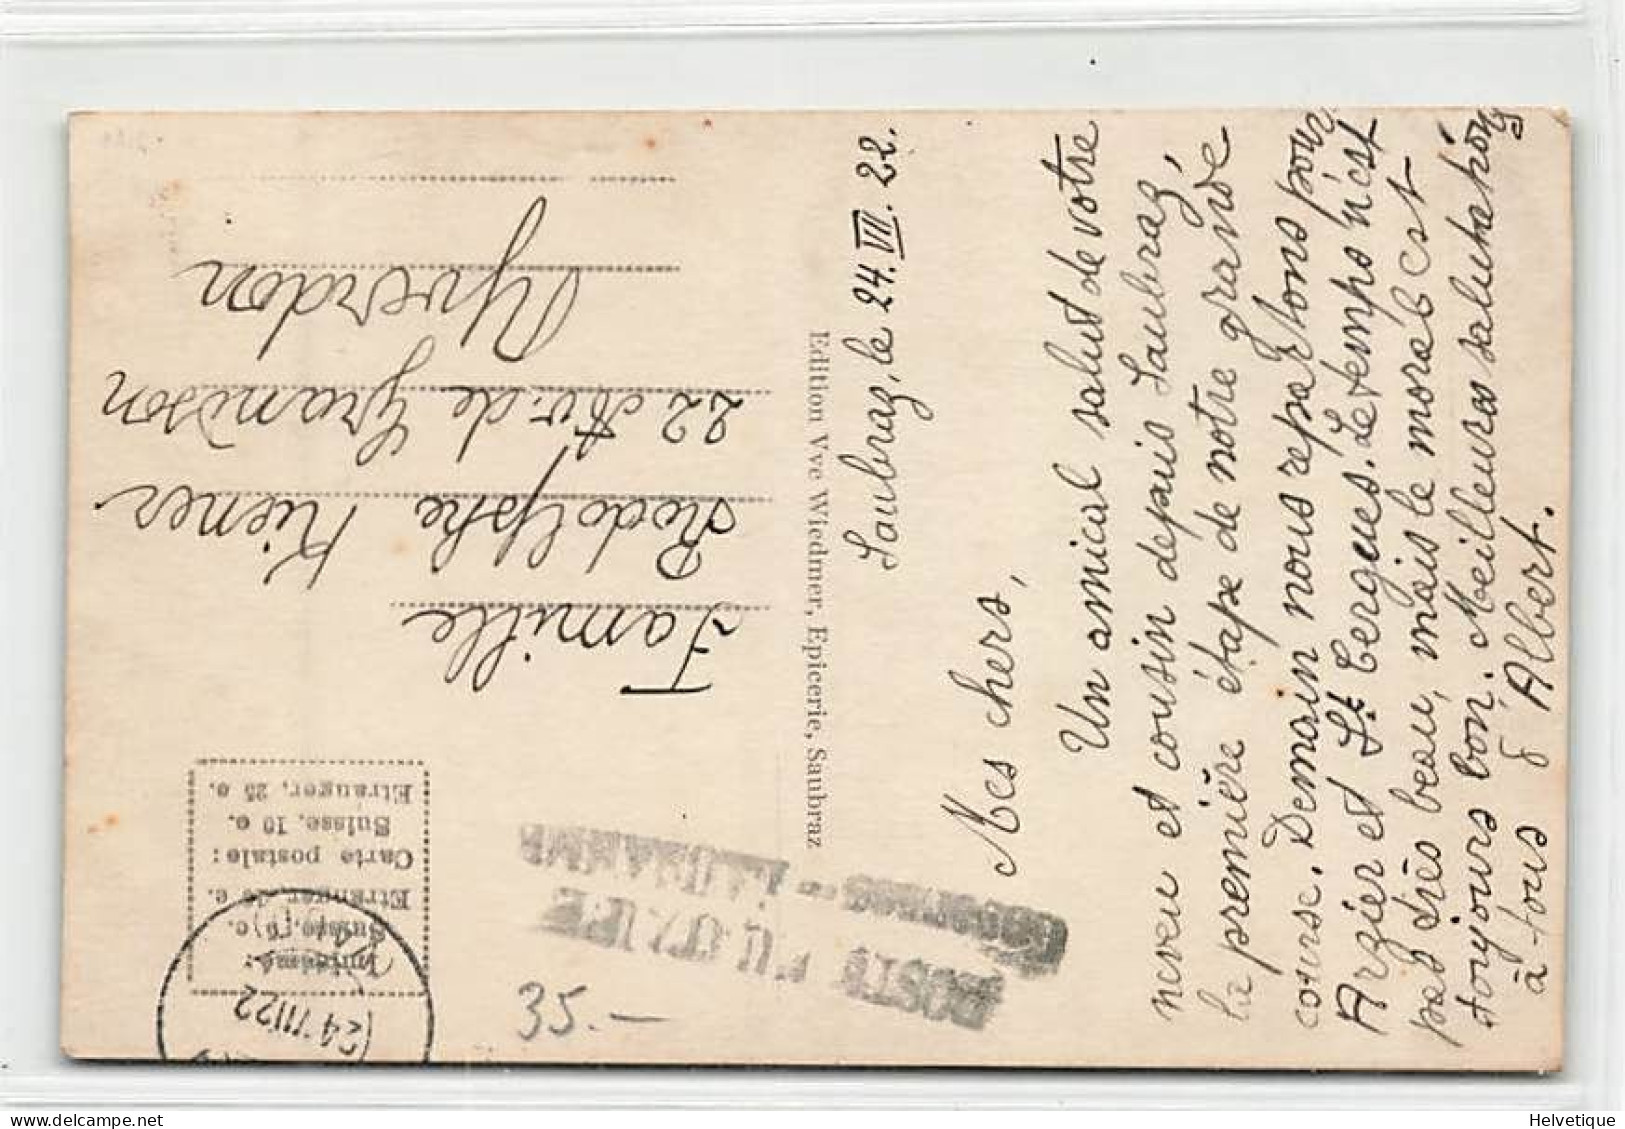 Saubraz, le 24. VII. 22.
Mes chers,
Un amical salut de votre
neveu et cousin depuis Saubraz,
la première étape de notre grande
course. Demain nous repartons pour
Arzier et St. Cergues. Le temps n'est
pas très beau, mais le moral est
toujours bon. Meilleures salutations
à tous Albert.
Edition Vve Wiedmer, Epicerie, Saubraz
Famille
Rodolphe Kiener
22 Av. de Grandson
Yverdon
Suisse, c.
Etranger de c.
Carte postale:
Suisse, 10 c.
Etranger, 25 c.
24 VII 22
LAUSANNE
35.—
Helvetique